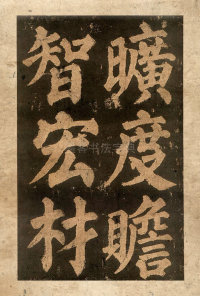 曠度瞻
智宏材